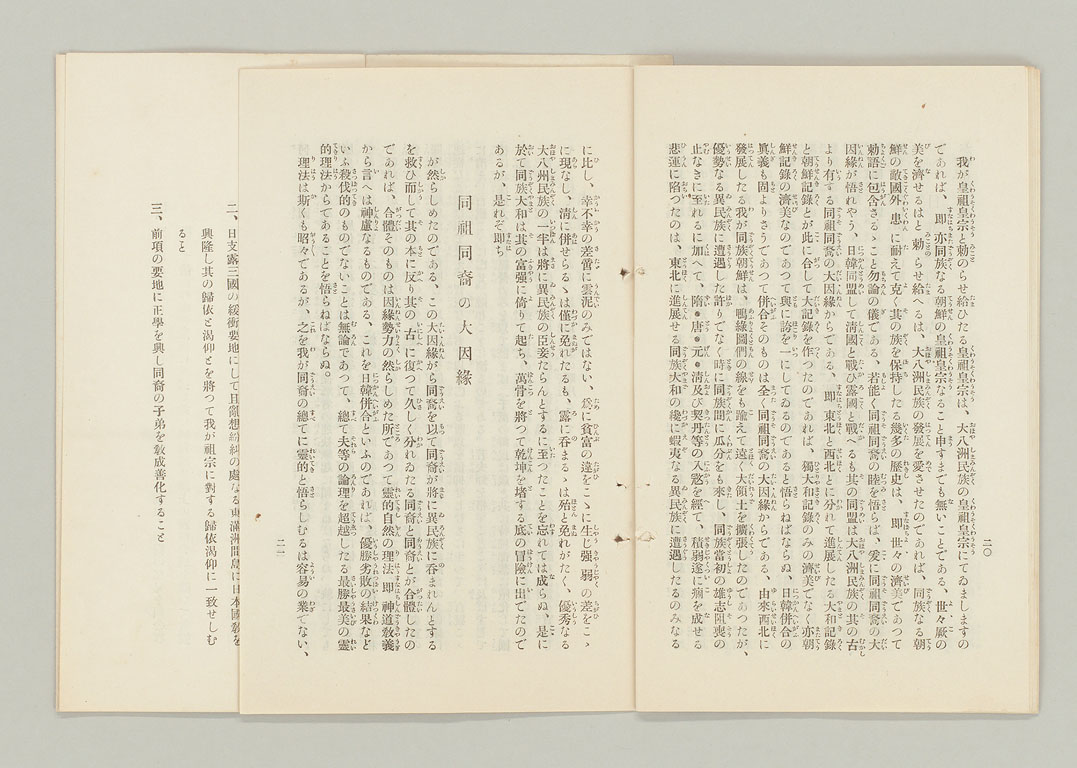 我が皇祖皇宗と勅のらせ給ひたる皇祖皇宗は、大八洲民族の皇祖皇宗にてゐましますの
であれば、即亦同族なる朝鮮の皇祖皇宗なること申すまでも無いことである、世々厥の
美を濟せるはと勅らせ給へるは、大八洲民族の發展を愛させたのであれば、同族なる朝
鮮の敵國外患に耐えて克く其の族を保持したる幾多の歷史は、即世々の濟美であつて
勅語に包含さるゝこと勿論の儀である、若能く同祖同裔の睦を悟らば、爰に同祖同裔の大
因緣が悟れやう、日韓同盟して淸國と戰び露國と戰へるも其の同盟は大八洲民族の其の古
より有する同祖同裔の大因緣からである、即東北と西北とに分れて進展したる大和記錄
と朝鮮記錄とが此に合して大記錄を作つたのであれば、獨大和記錄のみの濟美でなく亦朝
鮮記錄の濟美なのであつて與に誇を一にしてゐるのであると悟らねばならぬ、日韓併合の
眞義も固よりさうであつて併合そのものは全く同祖同裔の大因緣からである、由來西北に
發展した我が同族朝鮮は、鴨綠圖們の綠をも踰えて遠く大領土を擴張したのであつたが、
優勢なる異民族に遭遇した許りでなく時に同族間に瓜分をも來し、同族當初の雄志阻喪の
止なきに至れるに加へて、隋・唐・元・淸及び契丹等の入寇を經て、積弱遂に痼を成せる
悲運に陷つたのは、東北に進展せる同族大和の纔に蝦夷なる異民族に遭遇したるのみなる
二〇
に比し、幸不幸の差啻に雲泥のみではない、爲に貧富の違をこゝに生じ强弱の差をこゝ
に現なし、淸に併せらるゝは僅に免れたるも、露に呑まるゝは殆と免れがたく、優秀なる
大八州民族の一半は將に異民族の臣妾たらんとするに至つたことを忘れては成らぬ、是に
於て同族大和は其の富强に倚りて起ち、萬骨を將つて乾坤を堵する底の冒險に出でたので
あるが、是れぞ即ち
同祖同裔の大因緣
が然らしめたのである、この大因緣がら同裔を以て同裔が將に異民族に呑まれんとする
を救ひ而して其の本に反り其の古に復つて久しく分れゐたる同裔と同裔とが合體したの
であれば、合體そのものは因緣勢力の然らしめた所であつて靈的自然の理法即神道敎義
から言へは神慮なるものである、これを日韓併合といふのであれば、優勝劣敗の結果など
いふ殺伐的のものでないことは無論であつて、總て夫等の論理を超越したる最勝最美の靈
的理法からであることを悟らねばならぬ。
理法は斯くも昭々であるが、之を我が同裔の總てに靈的と悟らしむるは容易の業でない、
二一
二、日支露三國の緩衝要地にして且亂想紛糾の處なる東滿洲間島に日本國敎を
興隆し其の歸依と渴仰とを將つて我が祖宗に對する歸依渴仰に一致せしむ
ると
三、前項の要地に正學を興し同裔の子弟を敎成善化すること